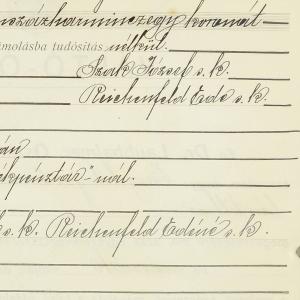 nszázharminczegy koronát
ámolásba tudósítás nélkül.
Szak József s. k.
Reichenfeld Ede s. k.
án
ékpénztár"-nál.
s. k. Reichenfeld Edéné s. k.